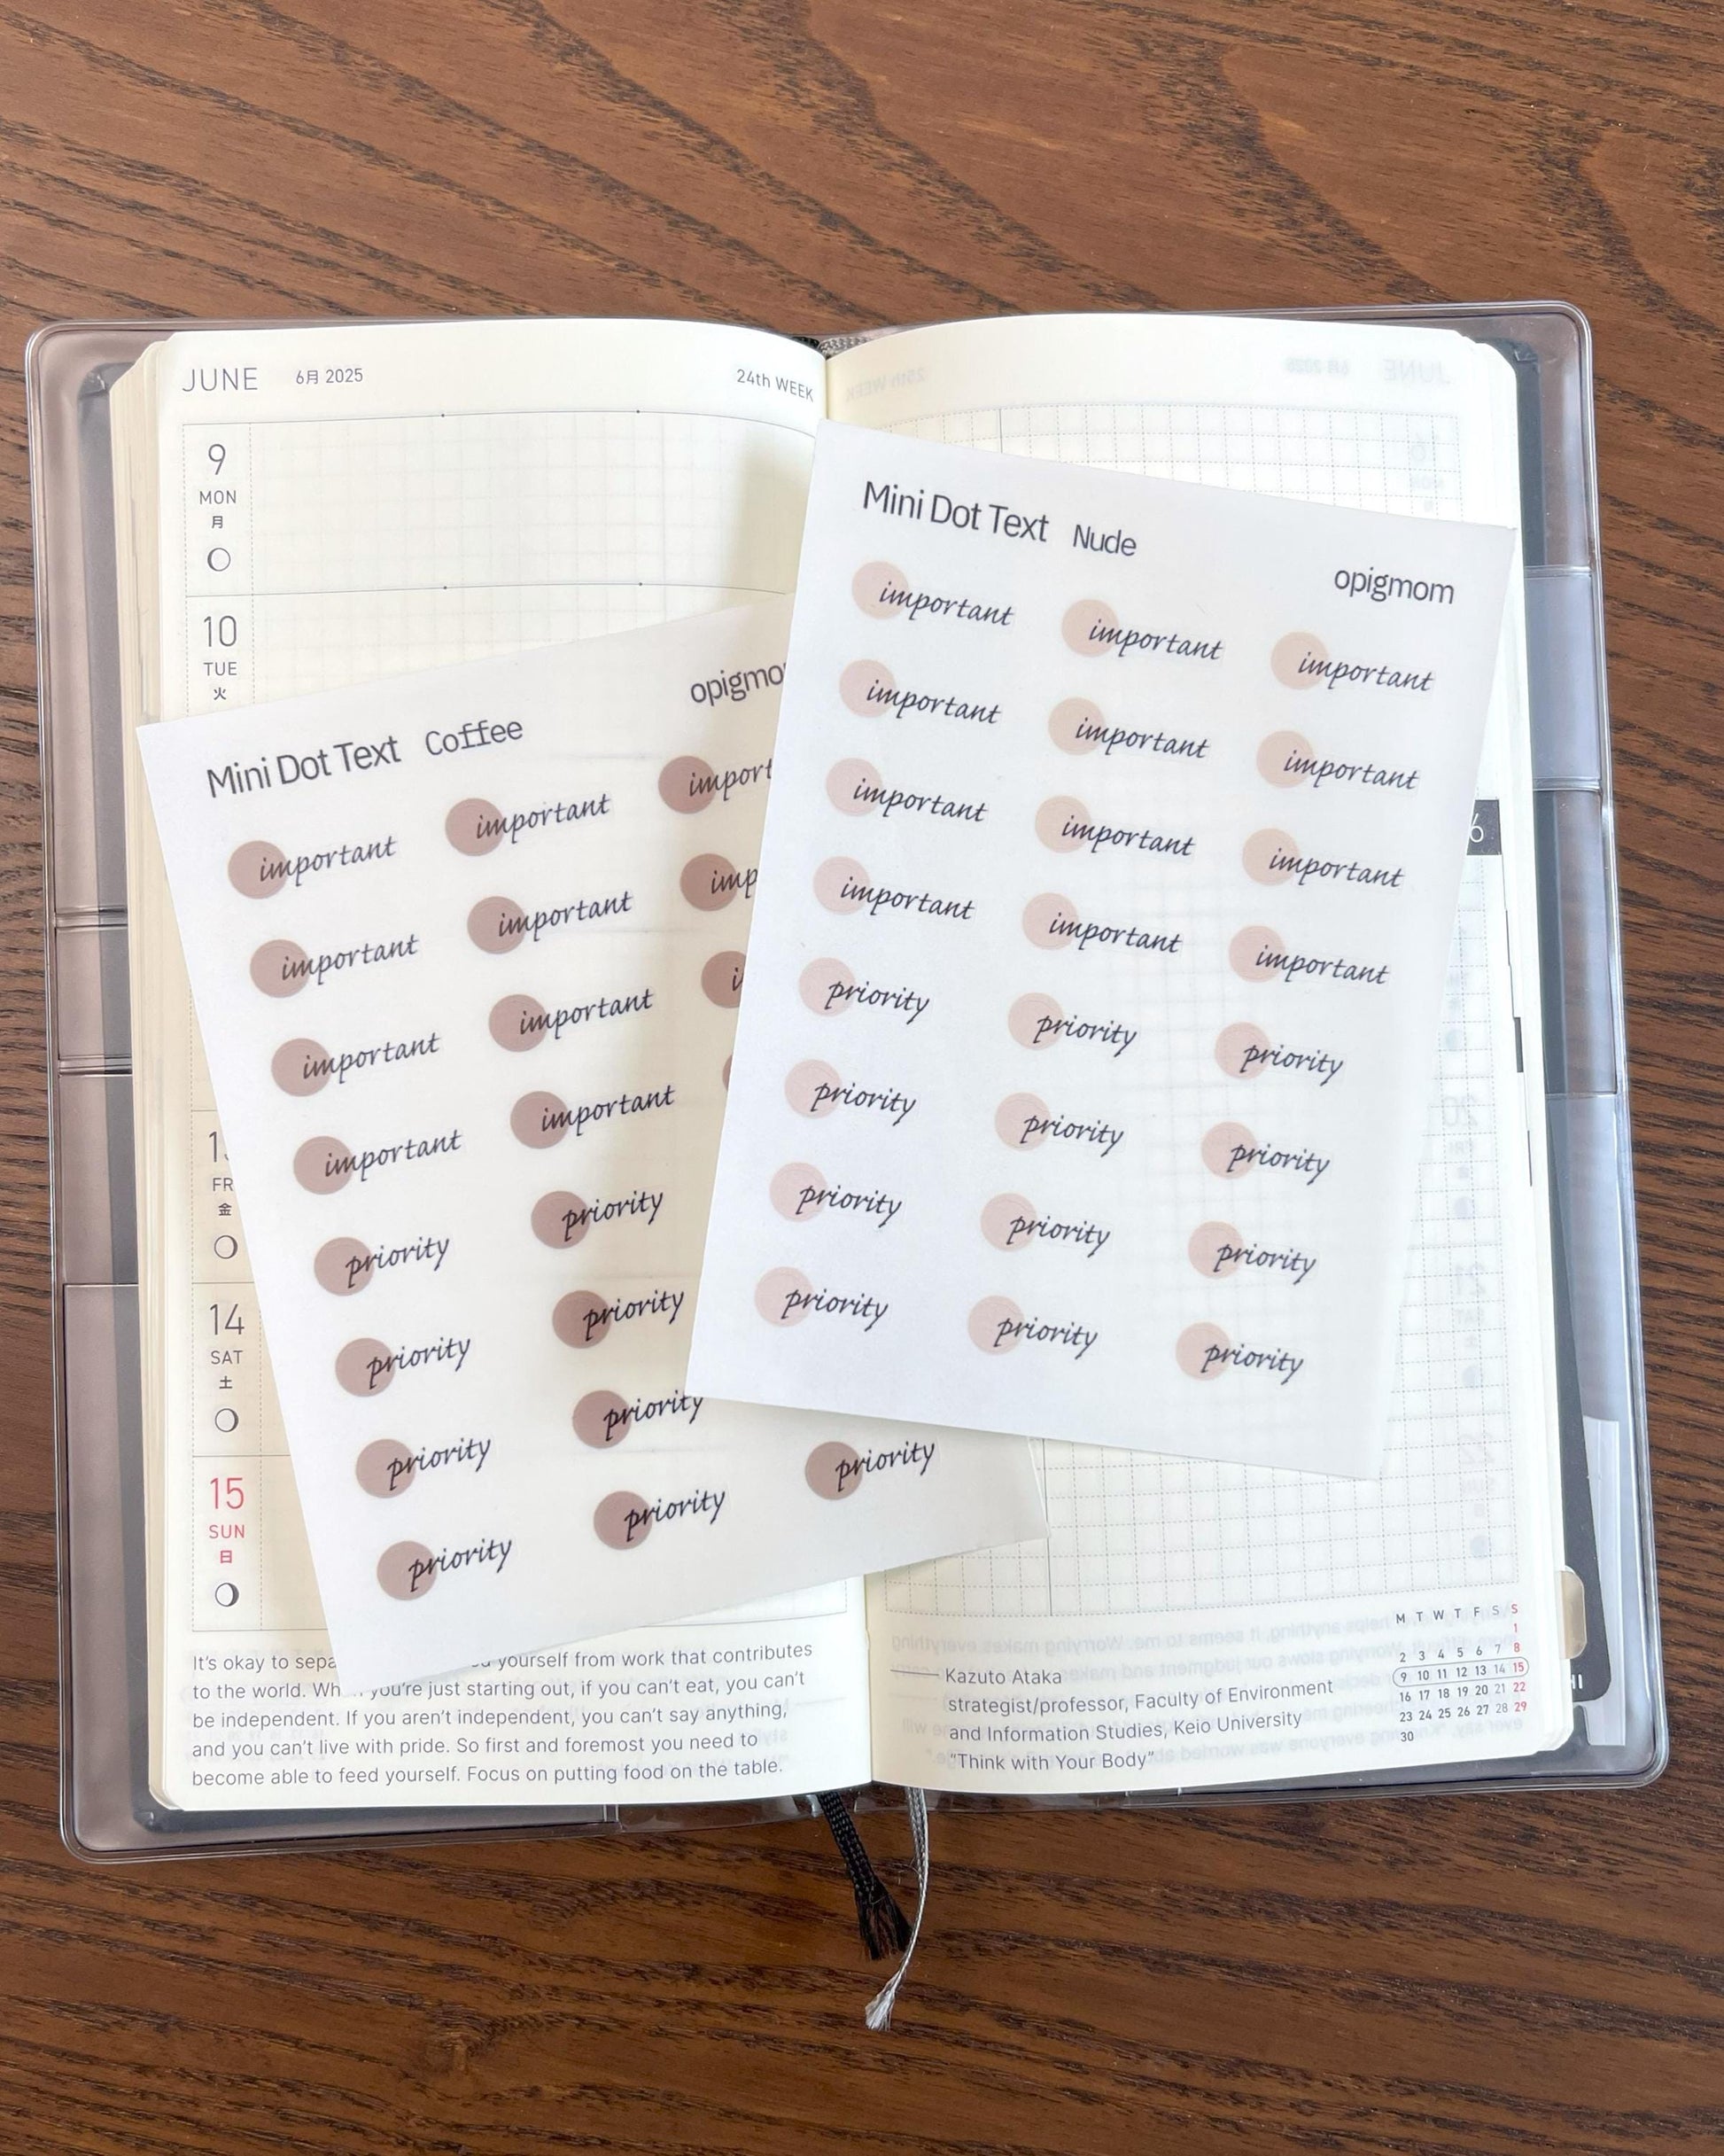 JUNE 6月 2025 24th WEEK
9
MON
月
10
TUE
火
FR
金
14
SAT
土
15
SUN
日
Mini Dot Text Coffee opigmo
important important import
important important imp
important important i
important important
priority priority
priority priority
priority priority
priority priority priority
Mini Dot Text Nude opigmom
important important important
important important important
important important important
important important important
priority priority priority
priority priority priority
priority priority priority
priority priority priority
6
It's okay to sepa yourself from work that contributes
to the world. Wh you're just starting out, if you can't eat, you can't
be independent. If you aren't independent, you can't say anything,
and you can't live with pride. So first and foremost you need to
become able to feed yourself. Focus on putting food on the table.
Kazuto Ataka
strategist/professor, Faculty of Environment
and Information Studies, Keio University
"Think with Your Body"
M T W T F S S
1
2 3 4 5 6 7 8
9 10 11 12 13 14 15
16 17 18 19 20 21 22
23 24 25 26 27 28 29
30